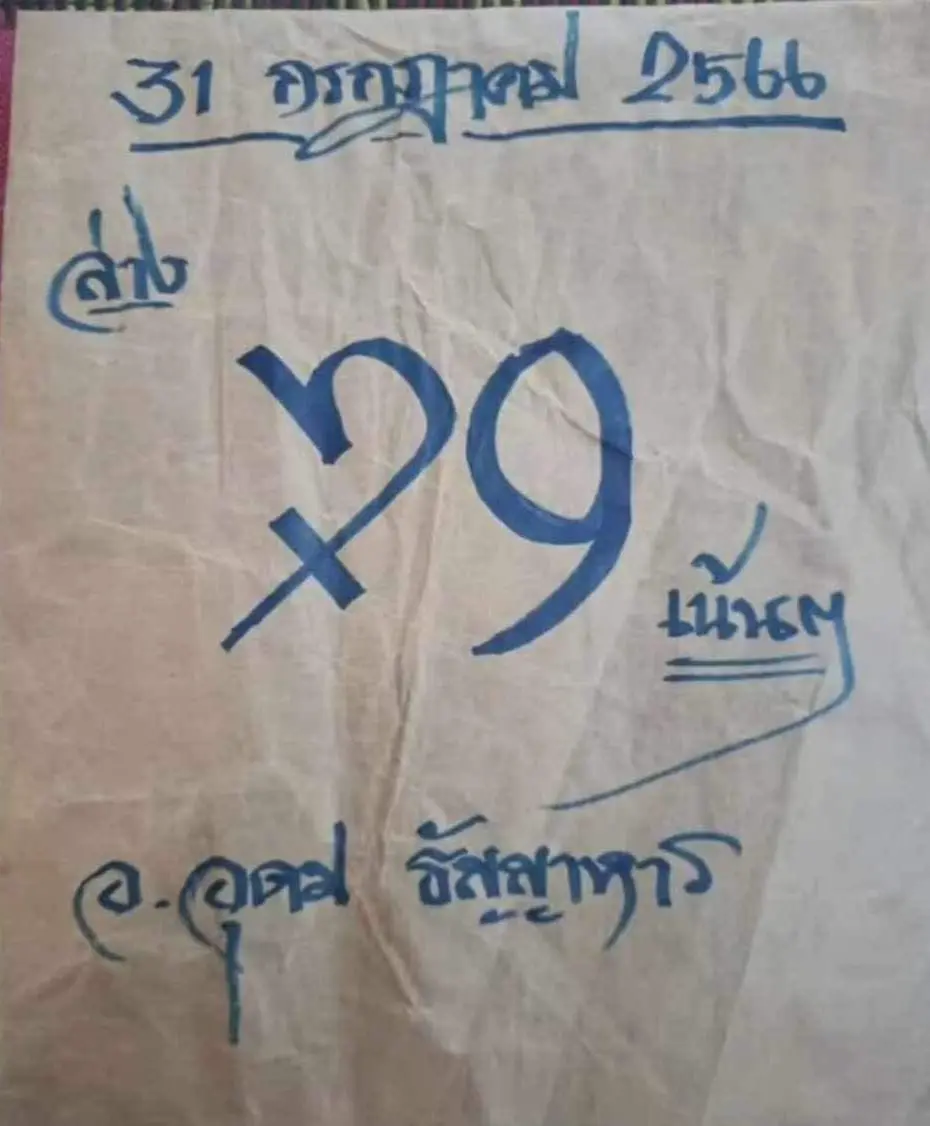 31 กรกฎาคม 2566
ล่าง
29
เน้นๆ
อ.อุดม ธัญญาหาร